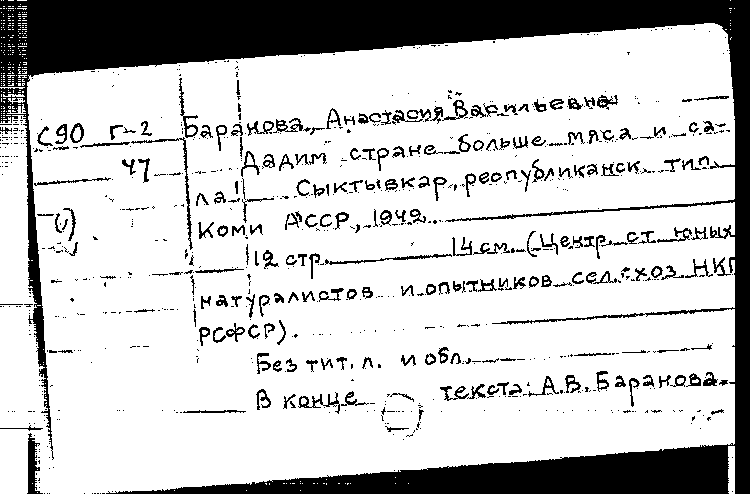 С90 Г-2 Баранова, Анастасия Васильевна
47 Дадим стране больше мяса и са-
ла! Сыктывкар, республиканск. тип.
Коми АССР, 1942.
12 стр. 14 см. (Центр. ст. юных
натуралистов и опытников сел.-хоз НКП
РСФСР).
Без тит. л. и обл.
В конце текста: А.В. Баранова.